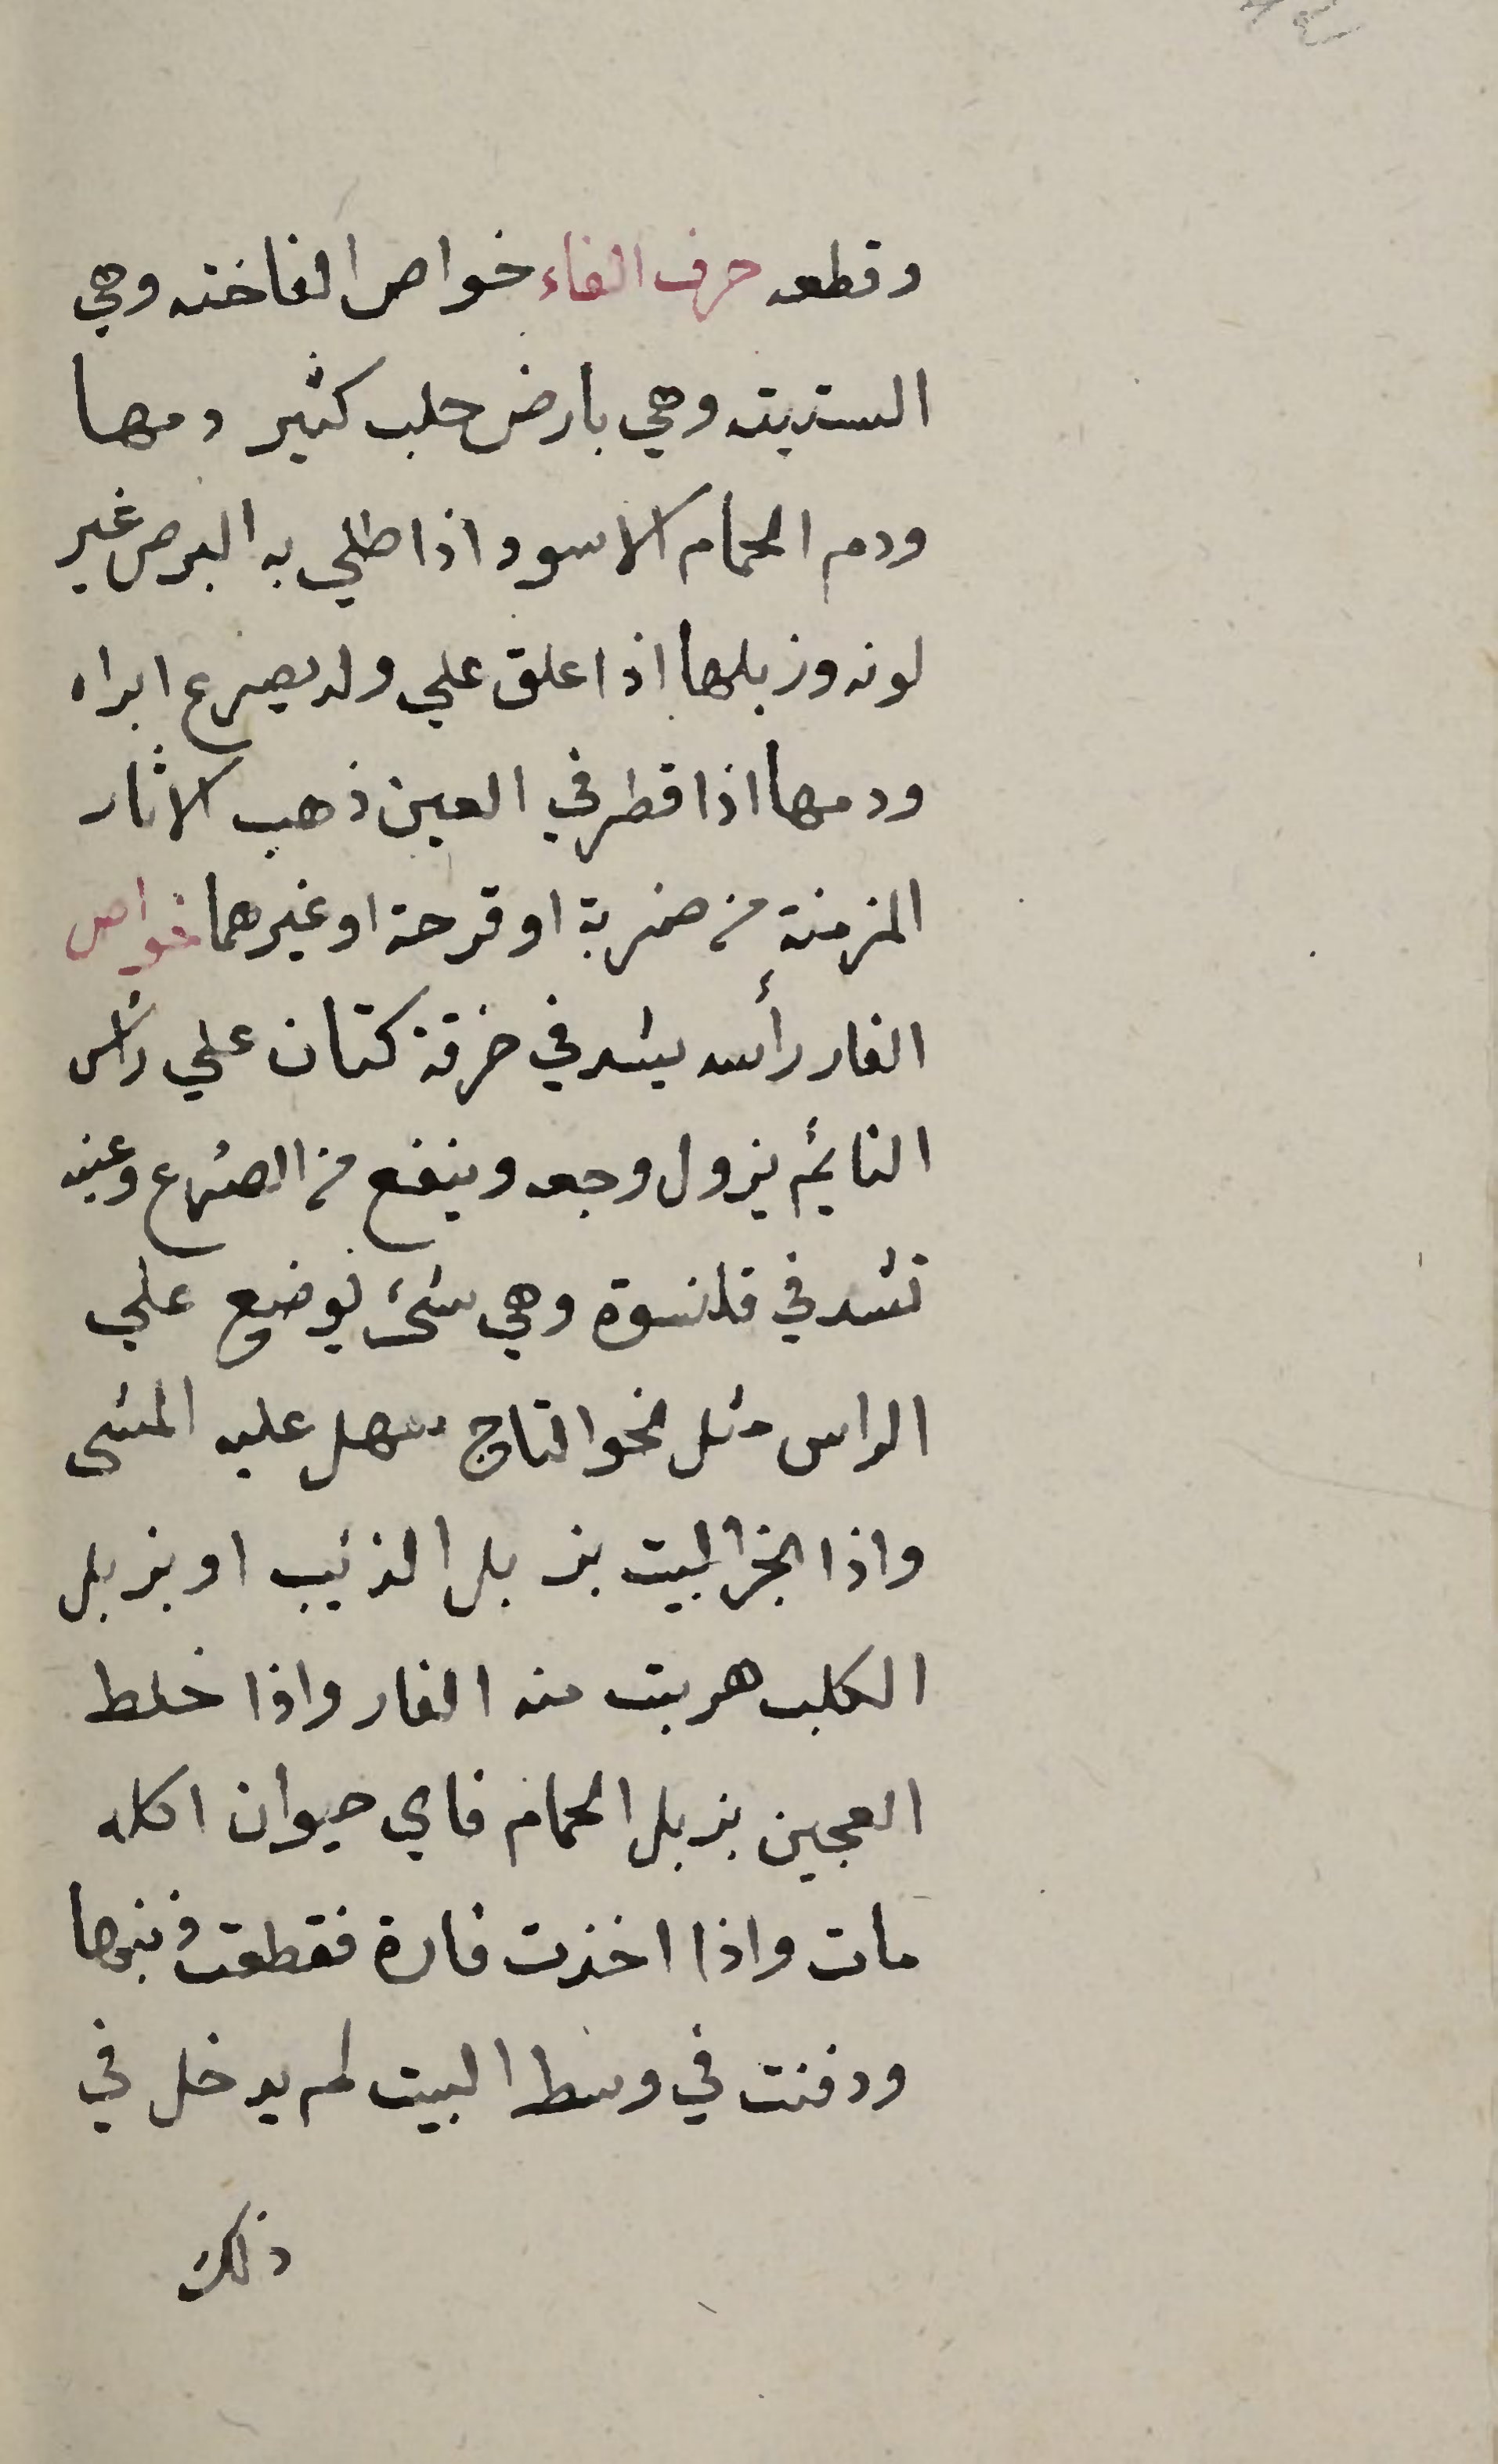 وقطعه حرف الفاء خواص الفاخته وهي
الستيته وهي بارض حلب كثير دمها
ودم الحمام الاسود اذا طلي به البرص غير
لونه وزبلها اذا علق علي ولد يصرع ابراه
ودمها اذا قطر في العين ذهب الاثار
المزمنة من ضربة او قرحة او غيرهما خواص
الفار رأسه يشد في خرقة كتان علي راس
النايم يزول وجعه وينفع من الصرع وعينه
تشد في قلنسوة وهي شئ يوضع علي
الراس مثل نحو التاج سهل عليه المشى
واذا بخر البيت بزبل الذئيب او بزبل
الكلب هربت منه الفار واذا خلط
العجين بزبل الحمام فاي حيوان اكله
مات واذا اخذت فارة فقطعت ذنبها
ودفنت في وسط البيت لم يدخل في
ذلك